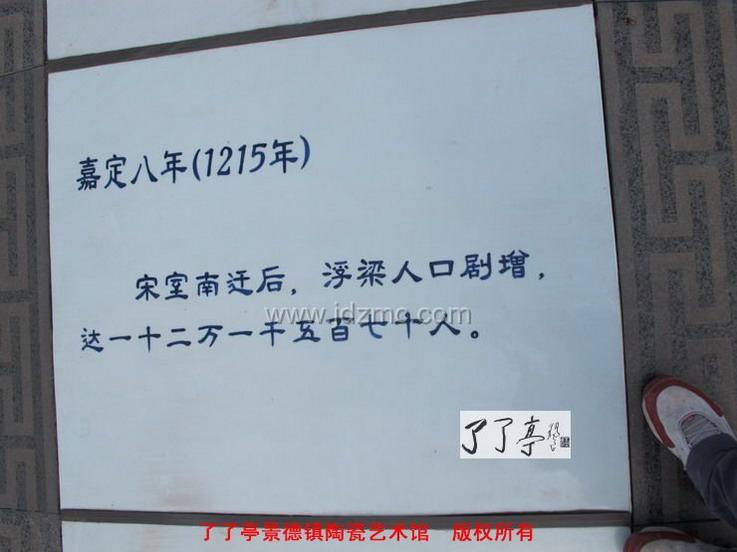 嘉定八年(1215年)
宋室南迁后，浮梁人口剧增，
www.jdzmc.com
达一十二万一千五百七十人。
了了亭
了了亭景德镇陶瓷艺术馆 版权所有